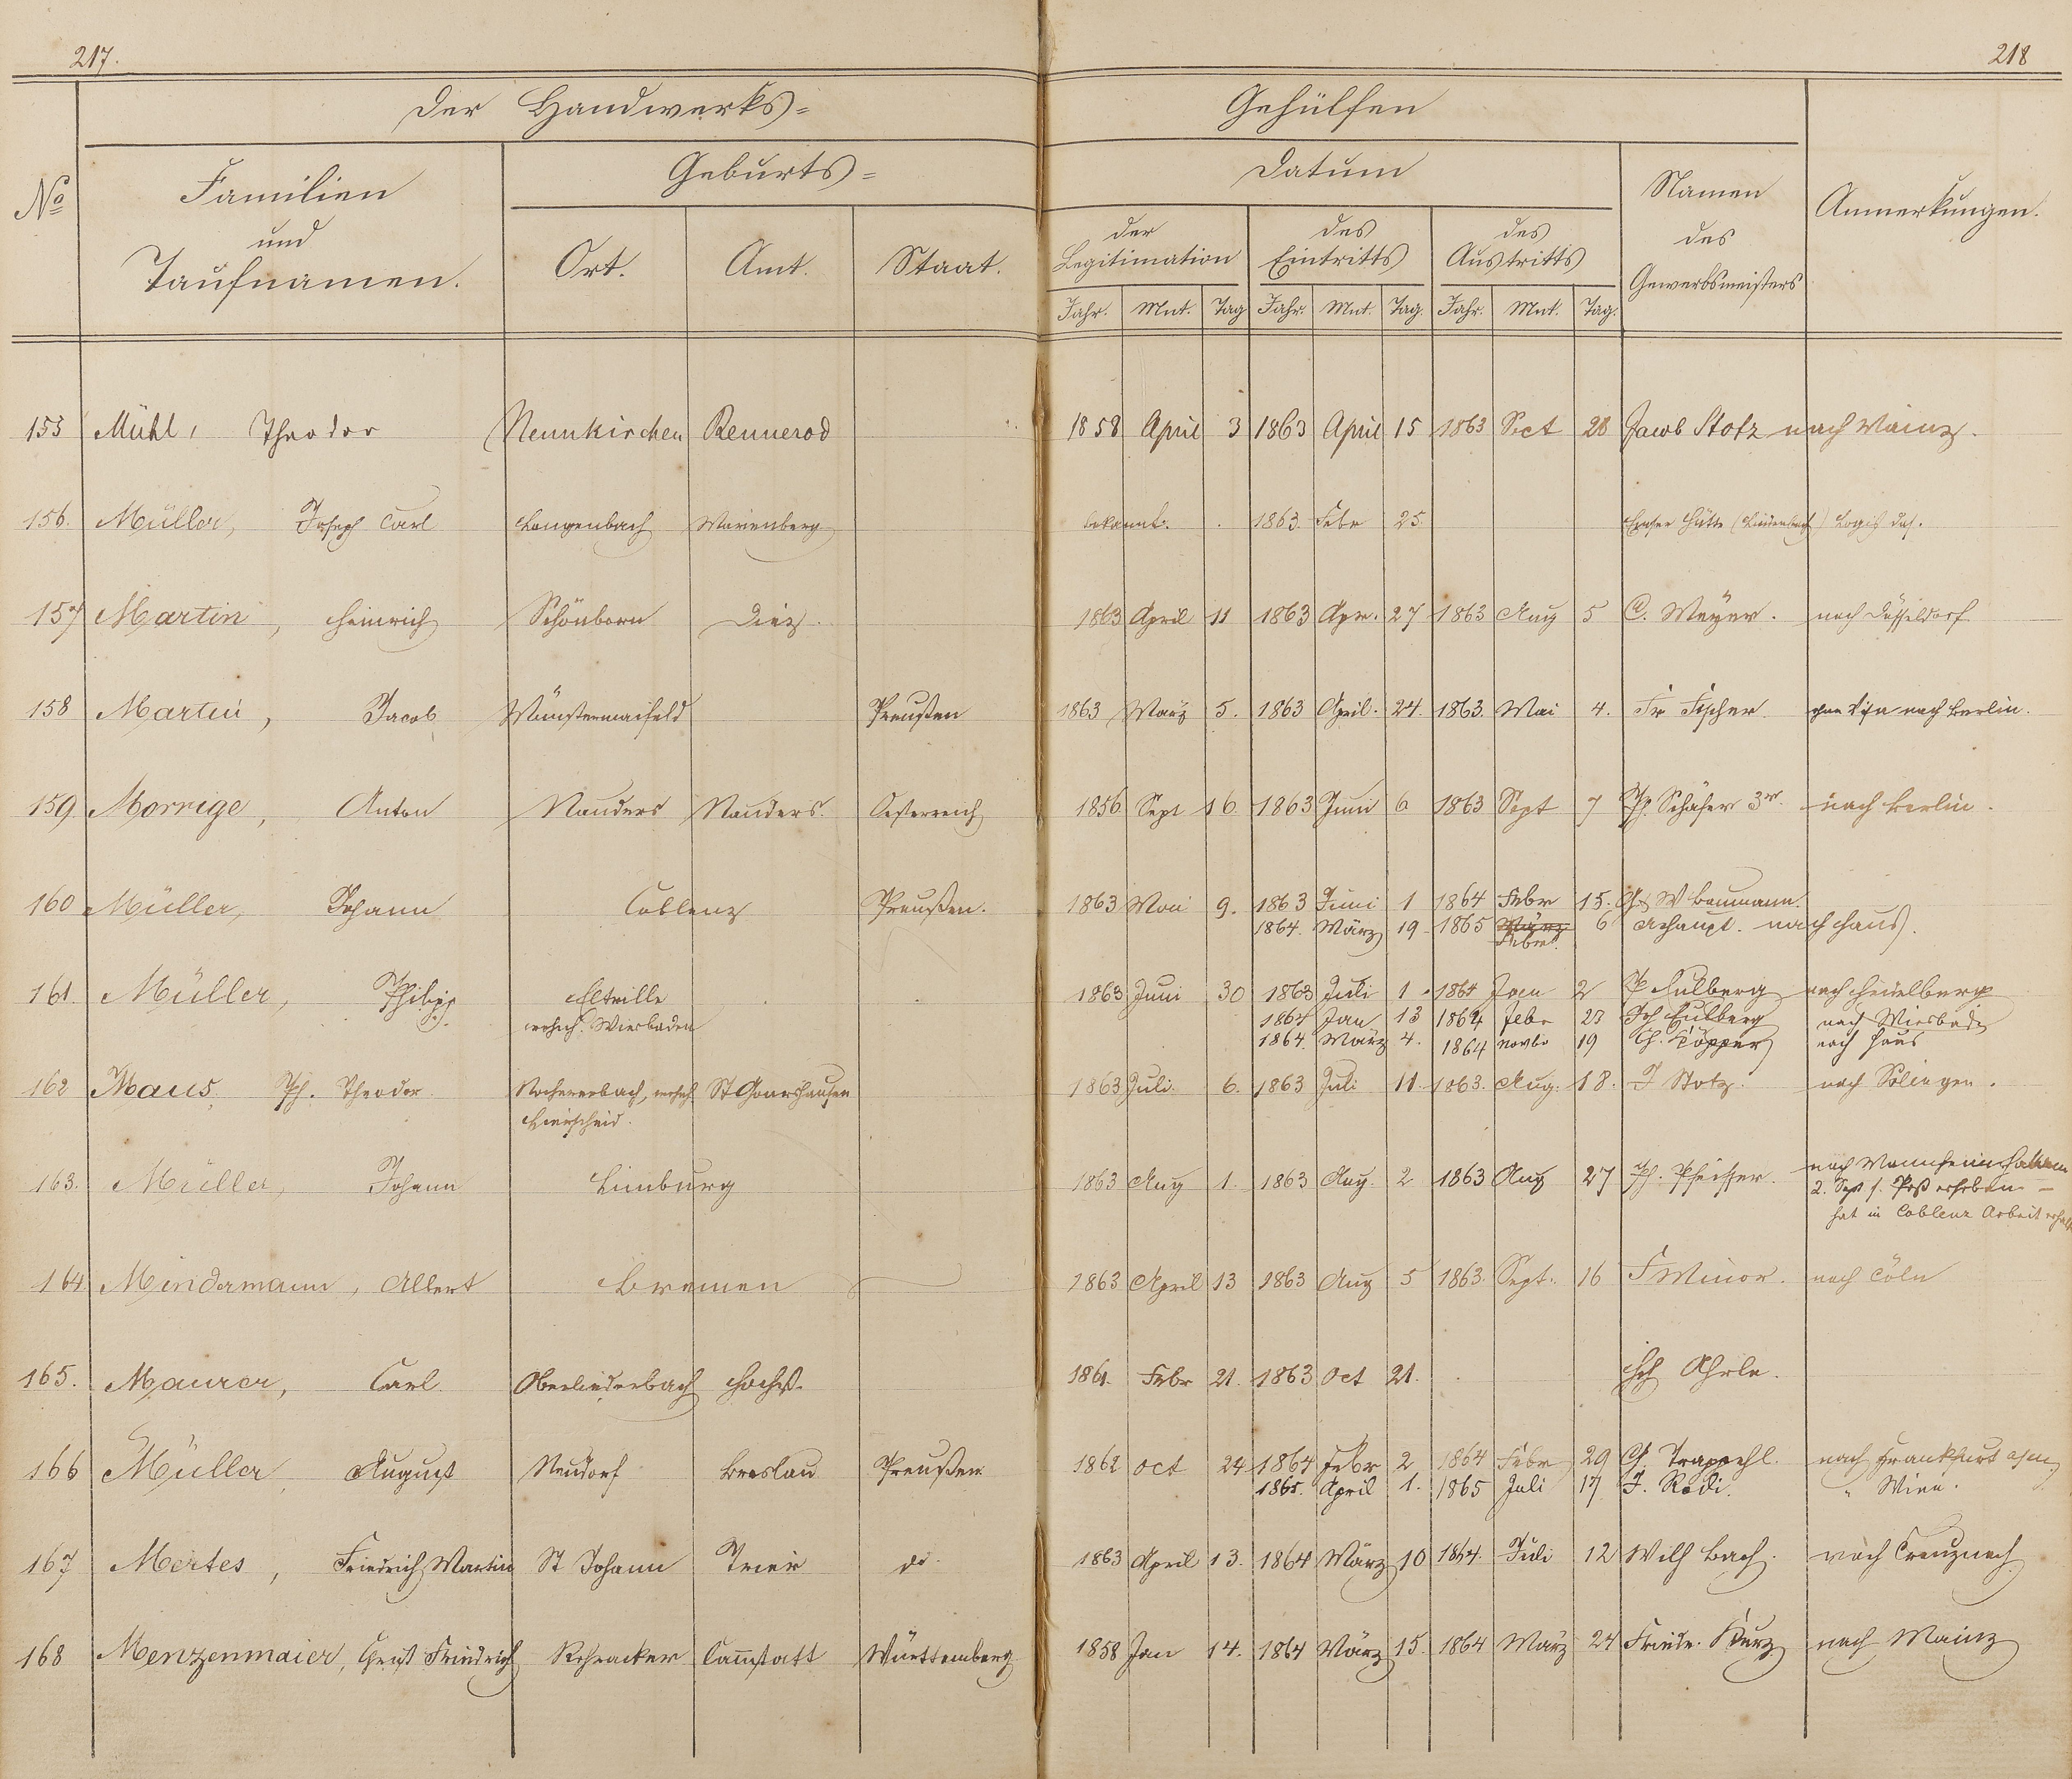 217.
218
Der Handwerks=
Gehülfen
No
Familien
und
Taufnamen.
Geburts=
Ort.
Amt.
Staat.
Datum
der
Legitimation
des
Eintritts
des
Austritts
Namen
des
Gewerbsmeisters
Anmerkungen.
Jahr. Mnt. Tag Jahr. Mnt. Tag. Jahr. Mnt. Tag.
153 Mühl, Theodor Neunkirchen Rennerod 1858 April 3 1863 April 15 1863 28 Jacob Stotz nach Mainz.
156. Müller, Joseph Carl Langenbach Marienberg bekannt. 1863 Febr 25 Emser Hütte (Lindenbach) Logis das.
157 Martin, Heinrich Schönborn Diez. 1863 April 11 1863 Apr. 27 1863 Aug 5 C. Meyer. nach Düsseldorf
158 Martin, Jacob Münstermaifeld Preußen 1863 März 5. 1863 April. 24. 1863. Mai 4. Fr Fischer nach Berlin.
159 Morrige, Anton Nauders Nauders. Oesterreich 1856 Sept 16. 1863 Juni 6 1863 Sept 7 Ph. Schäfer 3r. nach Berlin.
160 Müller, Johann Coblenz Preußen. 1863 Mai 9. 1863 Juni 1 1864 Febr 15. G. W Baumann.
1864. März 19 1865 März 6 nach Haus.
Febr.
161. Müller, Philipp Eltville 1863 Juni 30 1863 Juli 1. 1864 Jan 2 P Hulberg nach Heidelberg
wohnh. Wiesbaden 1864 Jan 13 1864 Febr 23 Joh Hulberg nach Wiesbaden
1864. März 4. 1864 Novbr 19 Ch. Töpper nach Haus
162 Maus, Ph. Theodor Nochernbach, wohnh. St Goarshausen 1863 Juli. 6. 1863 Juli 11. 1863. Aug. 18. J Stotz. nach Solingen.
Lierscheid.
163. Müller, Johann Limburg 1863 Aug 1. 1863 Aug. 2 1863 Aug 27 Ph. Pfeiffer. nach Mannheim
2. Sept s. Paß erhoben –
hat in Coblenz Arbeit erhalten
164 Mindermann, Albert Bremen 1863 April 13 1863 Aug 5 1863. Sept. 16 F Minor. nach Cöln
165. Maurer, Carl. Oberliederbach Höchst. 1861. Febr 21. 1863 Oct 21. Hch Ohrle.
166 Müller, August Neudorf Breslau Preußen 1862 Oct 24 1864 Febr 2 1864 Febr 29 G. Trappehl. nach Frankfurt a/m
1865. April 1. 1865 Juli 17 J. Rödi. " Wien.
167 Mertes, Friedrich Martin St Johann Trier do. 1863 April 13. 1864 März 10 1864. Juli 12 Wilh Bach. nach Creuznach.
168 Menzenmaier, Christ Friedrich Rohracker Cannstatt Württemberg 1858 Jan 14. 1864 März 15. 1864 März 24 Friedr. Kurz nach Mainz